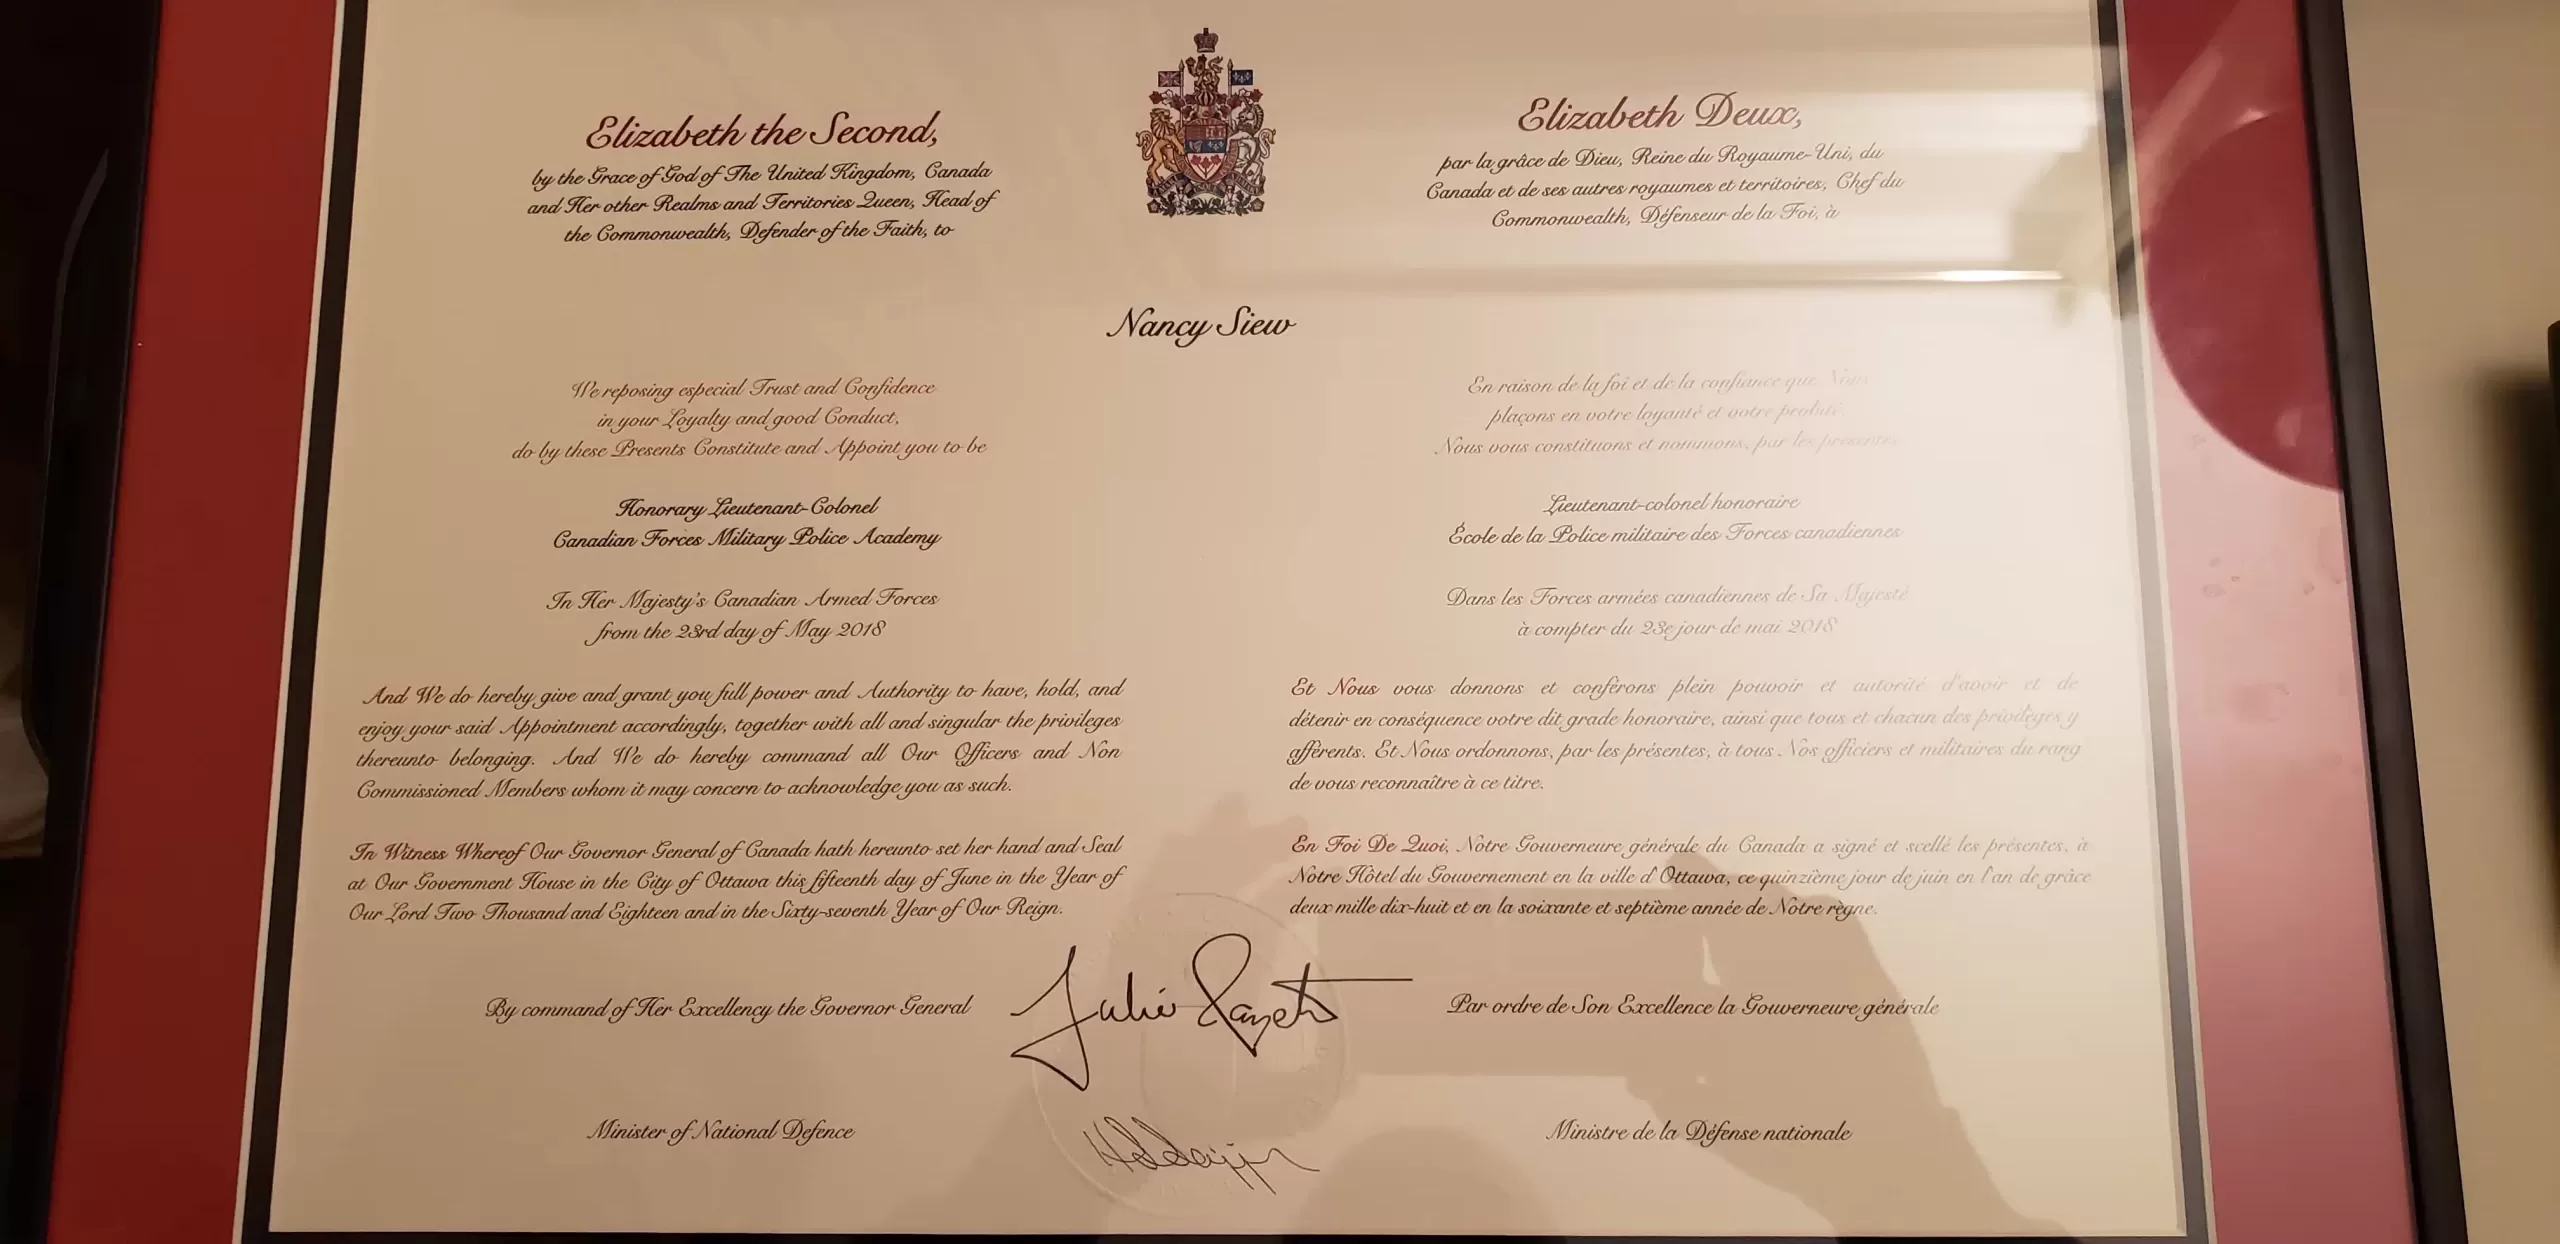 Elizabeth the Second,
by the Grace of God of The United Kingdom, Canada
and Her other Realms and Territories Queen, Head of
the Commonwealth, Defender of the Faith, to
Elizabeth Deux,
par la grâce de Dieu, Reine du Royaume-Uni, du
Canada et de ses autres royaumes et territoires, Chef du
Commonwealth, Défenseur de la Foi, à
Nancy Siew
We reposing especial Trust and Confidence
in your Loyalty and good Conduct,
do by these Presents Constitute and Appoint you to be
Honorary Lieutenant-Colonel
Canadian Forces Military Police Academy
In Her Majesty's Canadian Armed Forces
from the 23rd day of May 2018
And We do hereby give and grant you full power and Authority to have, hold, and
enjoy your said Appointment accordingly, together with all and singular the privileges
thereunto belonging. And We do hereby command all Our Officers and Non
Commissioned Members whom it may concern to acknowledge you as such.
In Witness Whereof Our Governor General of Canada hath hereunto set her hand and Seal
at Our Government House in the City of Ottawa this fifteenth day of June in the Year of
Our Lord Two Thousand and Eighteen and in the Sixty-seventh Year of Our Reign.
En raison de la foi et de la confiance que Nous
plaçons en votre loyauté et votre probité,
Nous vous constituons et nommons, par les présentes,
Lieutenant-colonel honoraire
École de la Police militaire des Forces canadiennes
Dans les Forces armées canadiennes de Sa Majesté
à compter du 23e jour de mai 2018
Et Nous vous donnons et conférons plein pouvoir et autorité d'avoir et de
détenir en conséquence votre dit grade honoraire, ainsi que tous et chacun des privilèges y
afférents. Et Nous ordonnons, par les présentes, à tous Nos officiers et militaires du rang
de vous reconnaître à ce titre.
En Foi De Quoi, Notre Gouverneure générale du Canada a signé et scellé les présentes, à
Notre Hôtel du Gouvernement en la ville d'Ottawa, ce quinzième jour de juin en l'an de grâce
deux mille dix-huit et en la soixante et septième année de Notre règne.
By command of Her Excellency the Governor General
Julie Payette
Par ordre de Son Excellence la Gouverneure générale
Minister of National Defence
Ministre de la Défense nationale